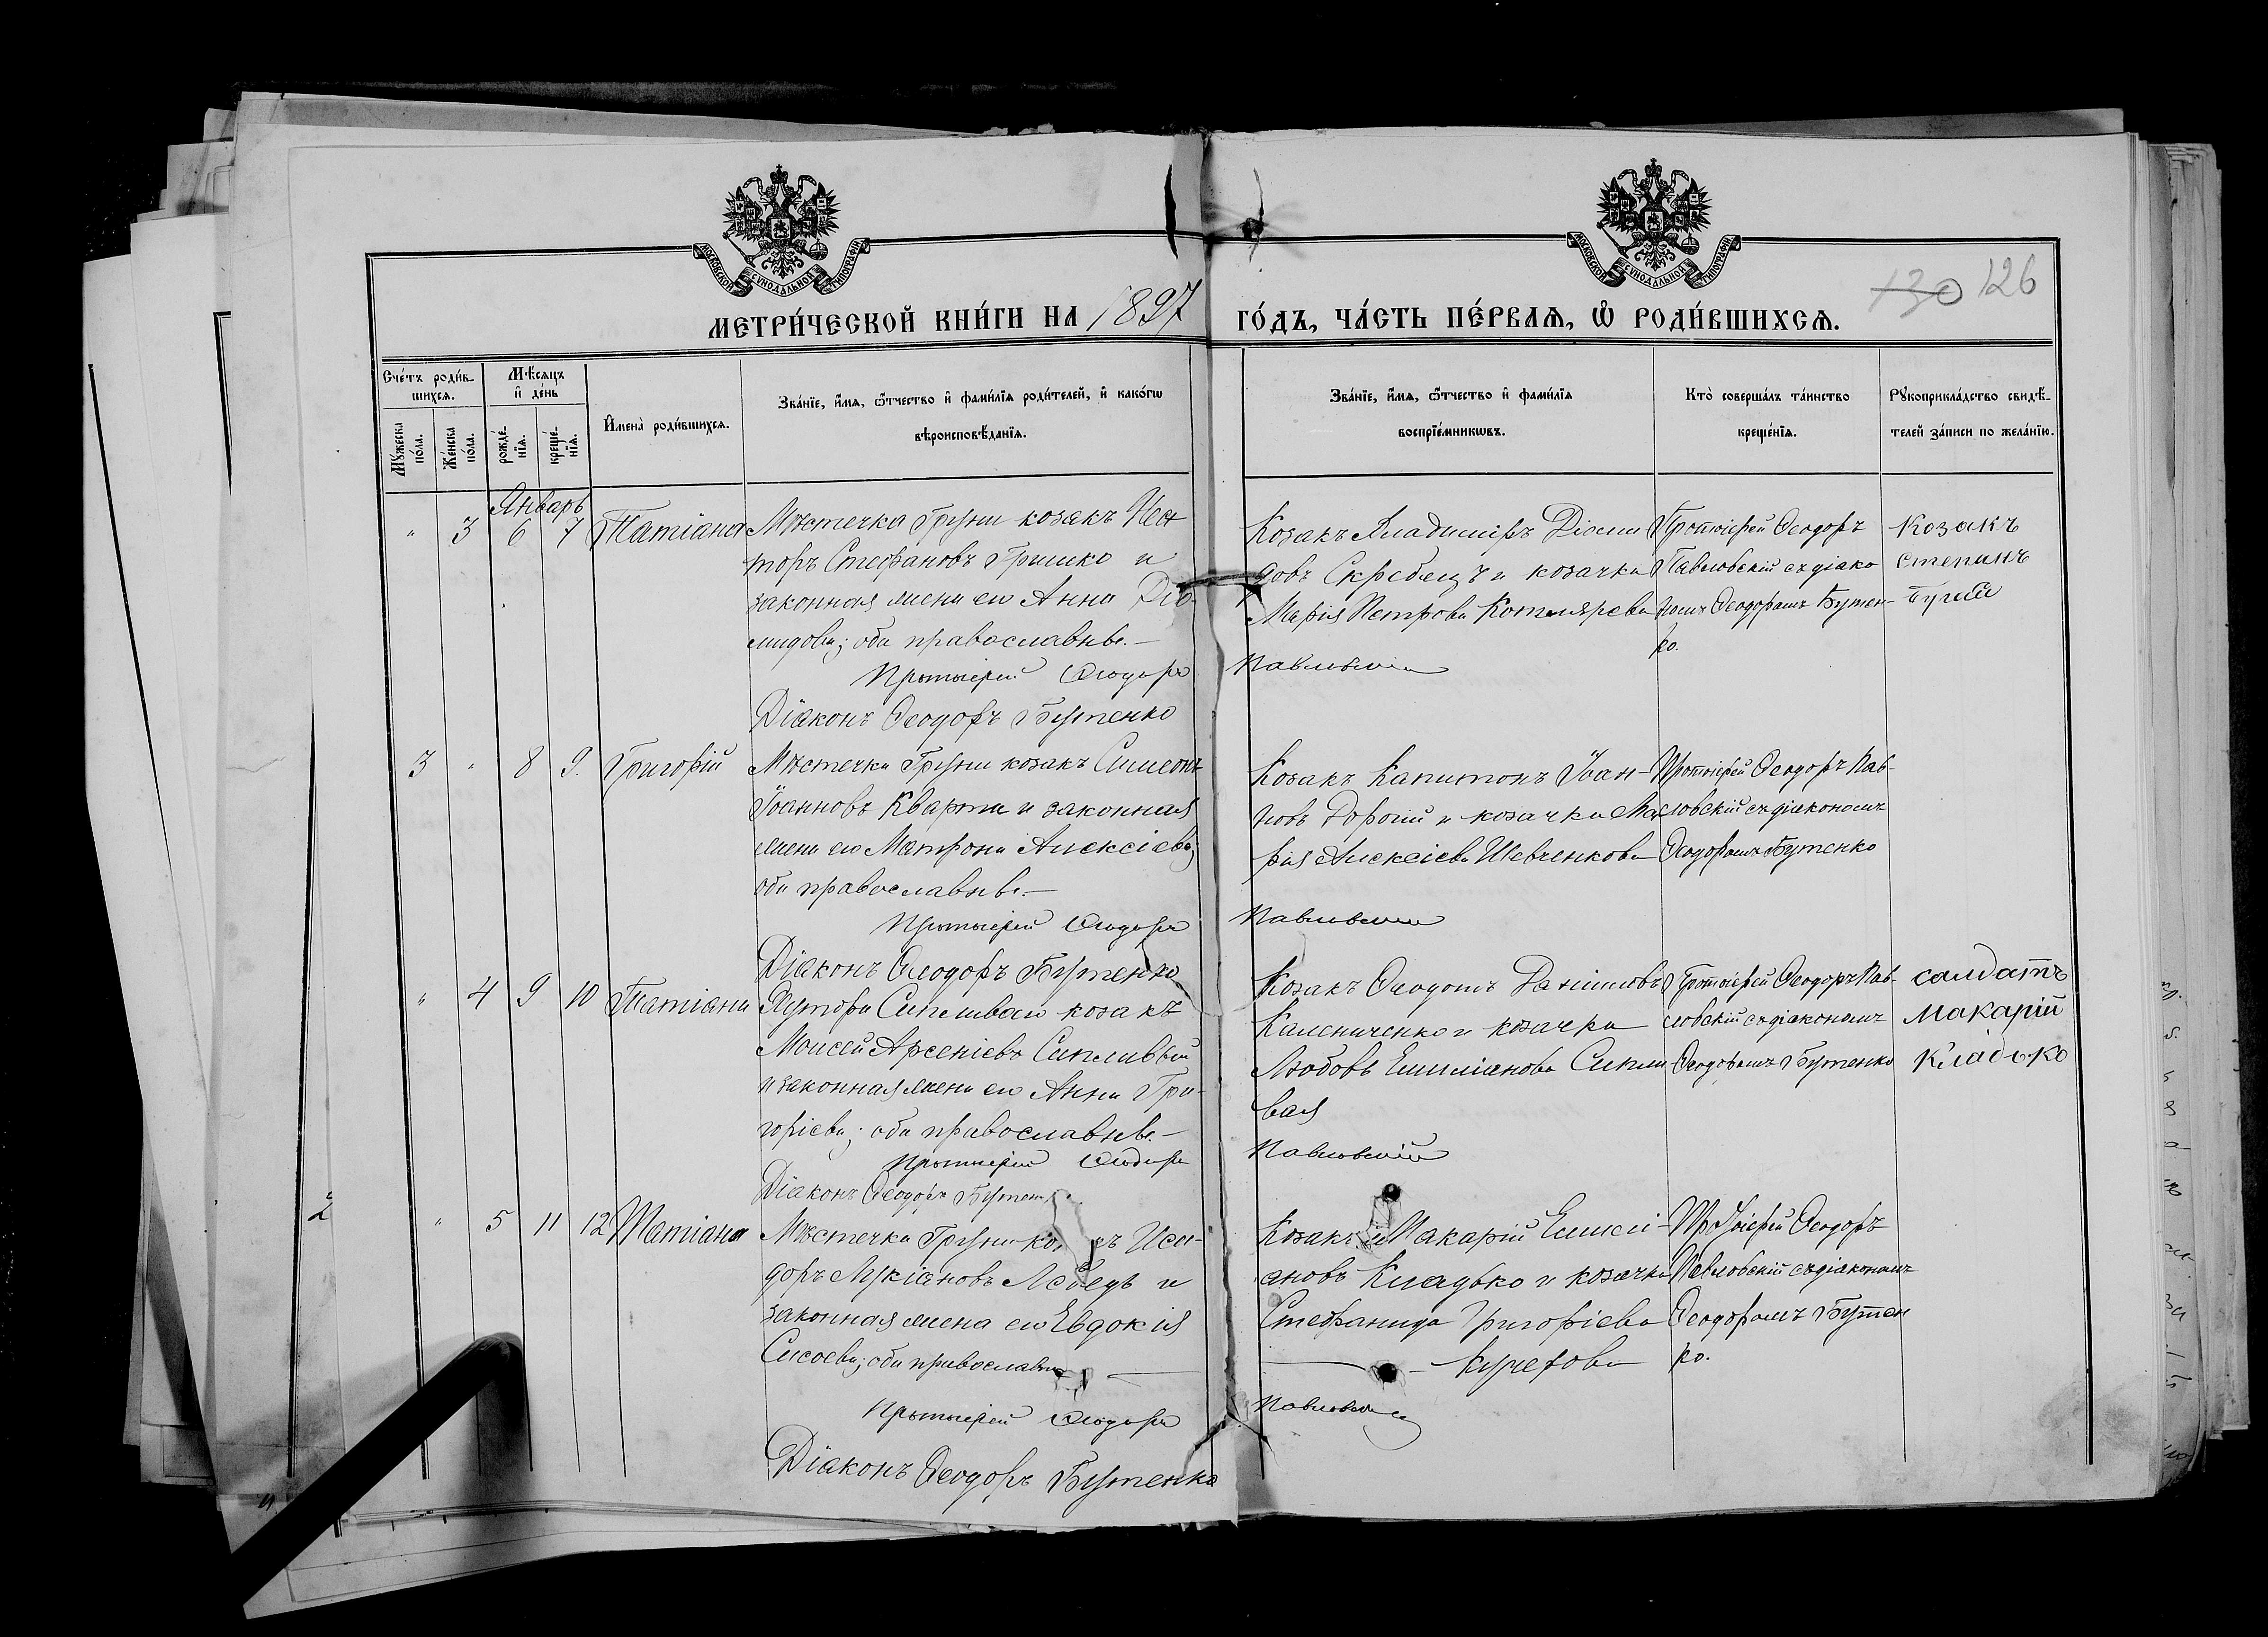 МОСКОВСКОЙ СУНОДАЛЬНОЙ ТИПОГРАФІИ
МОСКОВСКОЙ СУНОДАЛЬНОЙ ТИПОГРАФІИ
130 126
МЕТРИ́ЧЕСКОЙ КНИ́ГИ НА 1897 ГО́ДЪ, ЧА́СТЬ ПЕ́РВАѦ, Ѡ҆ РОДИ́ВШИХСѦ.
Сче́тъ роди́в-
шихсѧ.
Мꙋ́жеска по́ла.
Же́нска по́ла.
Мѣ́сѧцъ
и҆ де́нь
рожде́-
нїѧ.
креще́-
нїѧ.
И҆мена̀ роди́вшихсѧ.
Зва́нїе, и҆́мѧ, ѻ҆́тчество и҆ фами́лїѧ роди́телей, и҆ како́гѡ
вѣроисповѣ́данїѧ.
Зва́нїе, и҆́мѧ, ѻ҆́тчество и҆ фами́лїѧ
воспрїе́мникѡвъ.
Кто̀ соверша́лъ та́инство
креще́нїѧ.
Рꙋкоприкла́дство свидѣ́-
телей за́писи по жела́нїю.
Январь
" 3 6 7 Татіана
Мѣстечка Груни козакъ Нес-
торъ Стефановъ Гришко и
законная жена его Анна Діо-
мидова; оба православные.
Протоіерей Ѳеодоръ
Діаконъ Ѳеодоръ Бутенко
Козакъ Владиміръ Діоми
довъ Скребецъ и козачка
Марія Петрова Котлярева
Павловскій
Протоіерей Ѳеодоръ
Павловскій съ діако
номъ Ѳеодоромъ Бутен-
ко.
Козакъ
степанъ
3 " 8 9. Григорій
Мѣстечка Груни козакъ Симеонъ
Іоанновъ Кварта и законная
жена его Матрона Алексіева;
оба православные.
Протоіерей Ѳеодоръ
Діаконъ Ѳеодоръ Бутенко
Козакъ Капитонъ Іоан-
новъ Дорошій и козачка Ма
рія Алексіева Шевченкова
Павловскій
Протоіерей Ѳеодоръ Пав-
ловскій съ діакономъ
Ѳеодоромъ Бутенко
" 4 9 10 Татіана
Хутора Сипливаго козакъ
Моисей Арсеніевъ Сипливый
и законная жена его Анна Гри-
горіева; оба православные.
Протоіерей Ѳеодоръ
Діаконъ Ѳеодоръ Бутенко
Козакъ Ѳеодотъ Даніиловъ
Калениченко и козачка
Любовь Емиліанова Сипли
вая
Павловскій
Протоіерей Ѳеодоръ Пав-
ловскій съ діакономъ
Ѳеодоромъ Бутенко
салдатъ
Макарій
Кладько
2
" 5 11 12 Татіана
Мѣстечка Груни козакъ Иси-
доръ Лукіановъ Лебедь и
законная жена его Евдокія
Сисоева; оба православные
Протоіерей Ѳеодоръ
Діаконъ Ѳеодоръ Бутенко
Козакъ Макарій Емилі-
ановъ Кладько и козачка
Стефанида Григоріева
Павловскій
Протоіерей Ѳеодоръ
Павловскій съ діакономъ
Ѳеодоромъ Бутен
ко.